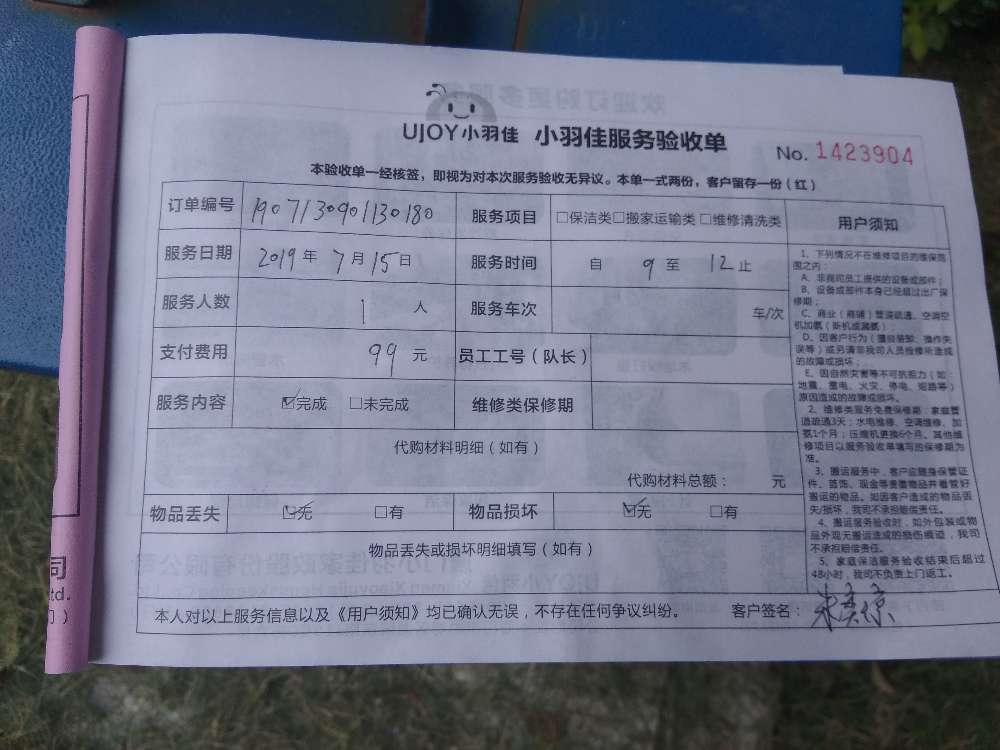 UJOY小羽佳 小羽佳服务验收单
No. 1423904
本验收单一经核签，即视为对本次服务验收无异议。本单一式两份，客户留存一份（红）
订单编号 1907130901130180 服务项目 □保洁类□搬家运输类□维修清洗类
服务日期 2019年7月15日 服务时间 自 9 至 12 止
服务人数 1 人 服务车次 车/次
支付费用 99 元 员工工号（队长）
服务内容 ☑完成 □未完成 维修类保修期
代购材料明细（如有）
代购材料总额： 元
物品丢失 ☑无 □有 物品损坏 ☑无 □有
物品丢失或损坏明细填写（如有）
本人对以上服务信息以及《用户须知》均已确认无误，不存在任何争议纠纷。 客户签名：
用户须知
1、下列情况不在维修项目的维保范
围之内：
A、非我司员工提供的设备或部件；
B、设备或部件本身已经超过出厂保
修期；
C、商业（商铺）管道疏通、空调空
机加氨（拆机或漏氨）；
D、因客户行为（擅自装卸、操作失
误等）或另请非我司人员维修所造成
的故障或损坏；
E、因自然灾害等不可抗拒力（如：
地震、雷电、火灾、停电、短路等）
原因造成的故障或损坏。
2、维修类服务免费保修期：家庭管
道疏通3天；水电维修、空调维修、加
氨1个月；压缩机更换6个月。其他维
修项目以服务验收单填写的保修期为
准。
3、搬运服务中，客户应随身保管证
件、首饰、现金等贵重物品并看管好
搬运的物品。如因客户造成的物品丢
失/损坏，我司不承担赔偿责任。
4、搬运服务验收时，如外包装或物
品外观无搬运造成的损伤痕迹，我司
不承担赔偿责任。
5、家庭保洁服务验收结束后超过
48小时，我司不负责上门返工。
司
td.